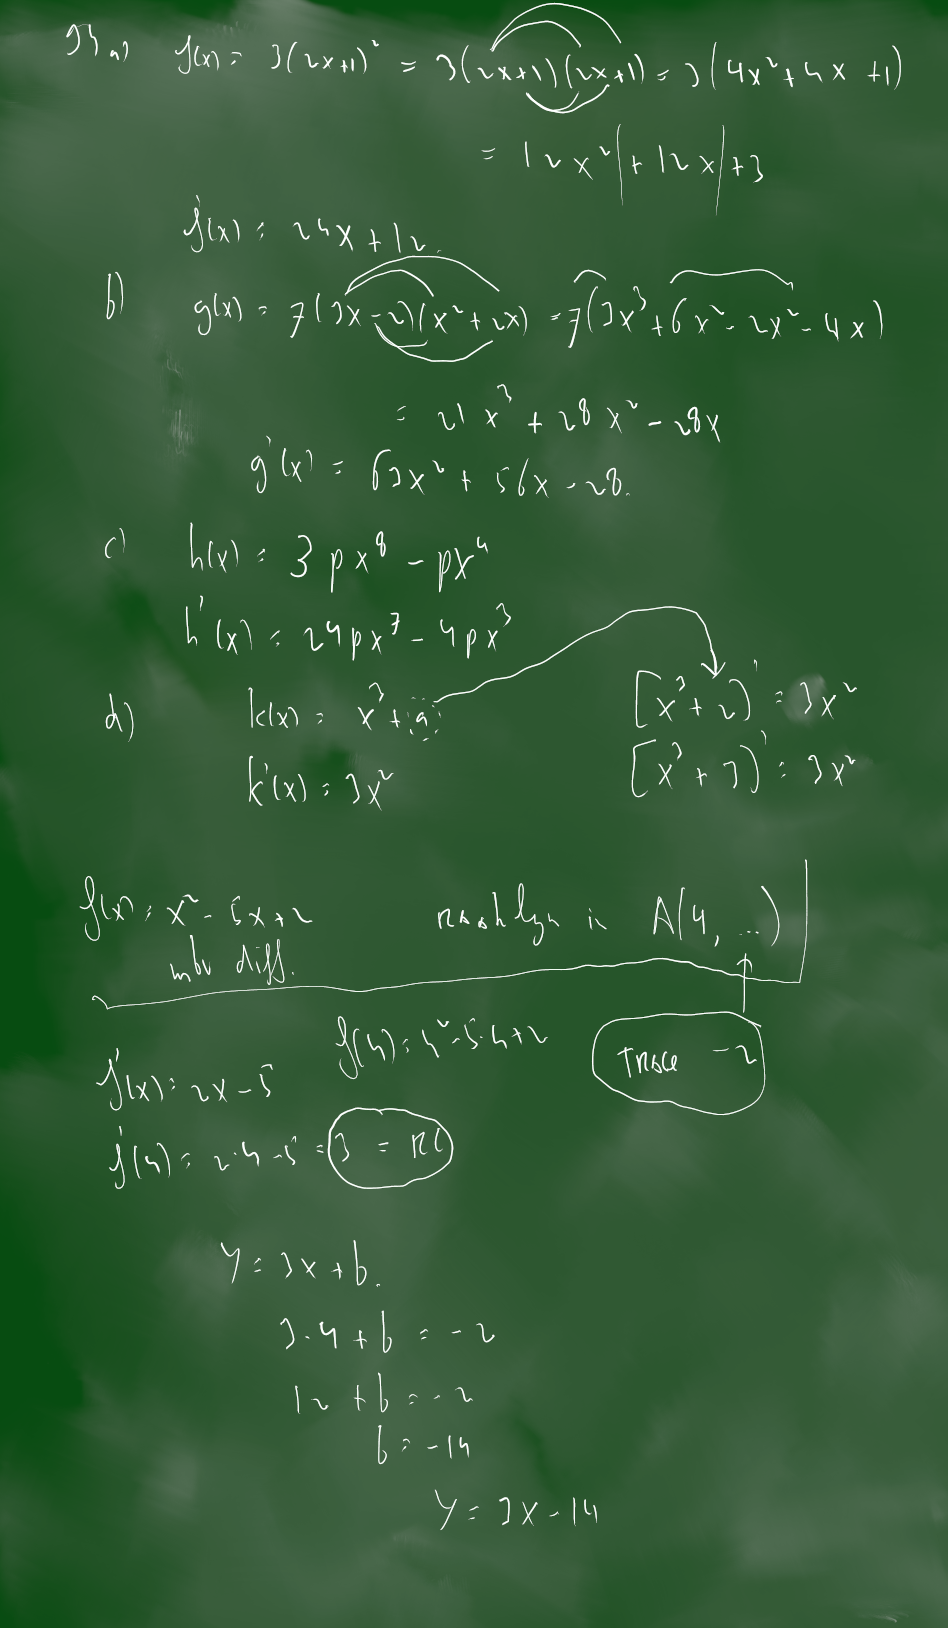 a) f(x) = 3(2x+1)² = 3(2x+1)(2x+1) = 3(4x²+4x+1)
= 12x²|+12x|+3
f'(x) = 24x+12.
b) g(x) = 7(3x-2)(x²+2x) = 7(3x³+6x²-2x²-4x)
= 21x³+28x²-28x
g'(x) = 63x²+56x-28.
c) h(x) = 3px⁸-px⁴
h'(x) = 24px⁷-4px³
d) k(x) = x³+a [x³+2]' = 3x²
k'(x) = 3x² [x³+3]' = 3x²
f(x) = x²-5x+2 raaklijn in A(4, ...)
mbv diff.
f(4) = 4²-5·4+2 Trace -2
f'(x) = 2x-5
f'(4) = 2·4-5 = 3 = RC
y = 3x+b.
3·4+b = -2
12+b = -2
b = -14
y = 3x-14